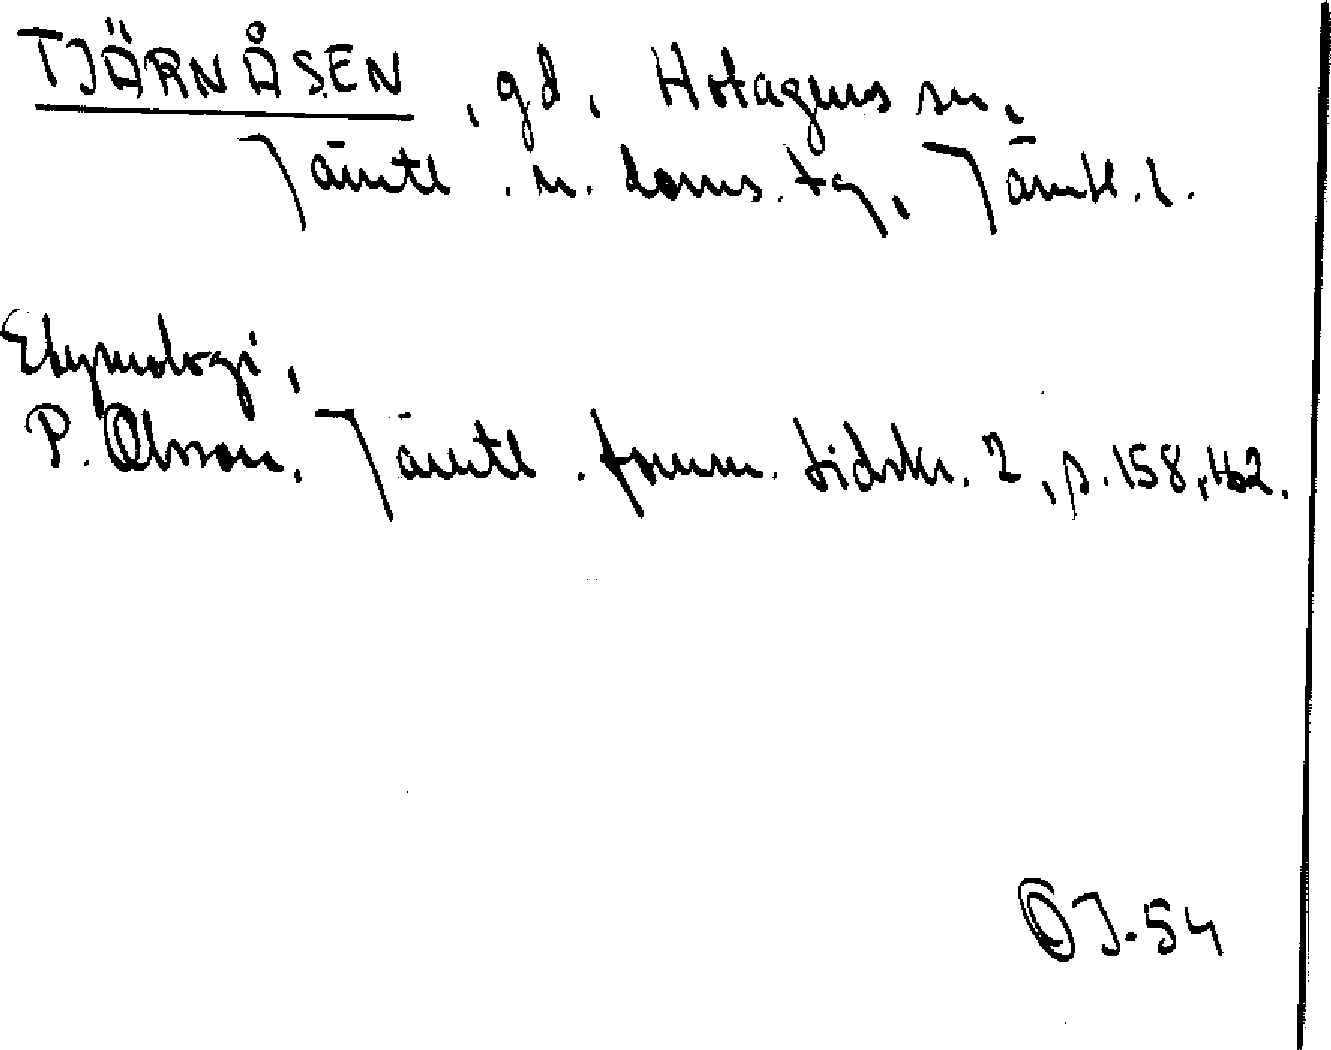 TJÄRNÅSEN, gd, Hotagens sn,
Jämtl. n. doms. tg, Jämtl. l.
Etymologi,
P. Olsson, Jämtl. fornm. tidskr. 2, p. 158, 162.
OJ-54